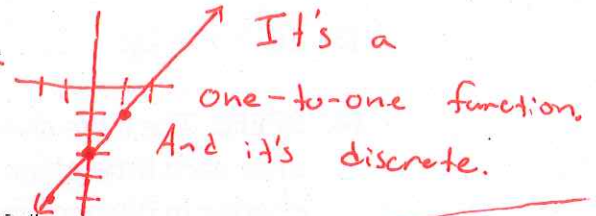 It's a
one-to-one function.
And it's discrete.